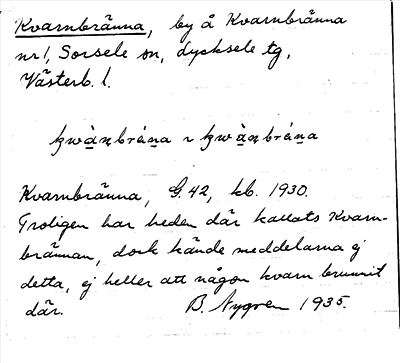 Kvarnbränna, by å Kvarnbränna
nr 1, Sorsele sn, Lycksele tg,
Västerb. l.
kwàṉbréṉa ~ kwàṉbréṉa
Kvarnbränna, G. 42, kb. 1930.
Troligen har heden där kallats Kvarn-
brännan, dock kände meddelarna ej
detta, ej heller att någon kvarn brunnit
där. B. Nygren 1935.